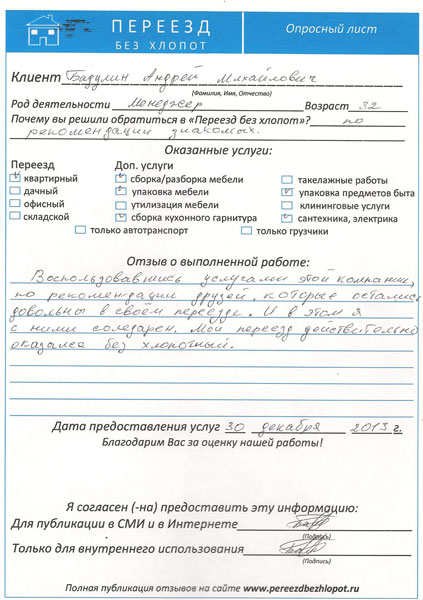 ПЕРЕЕЗД
БЕЗ ХЛОПОТ
Опросный лист
Клиент Бадулин Андрей Михайлович
(Фамилия, Имя, Отчество)
Род деятельности Менеджер Возраст 32
Почему вы решили обратиться в «Переезд без хлопот»? по
рекомендации знакомых.
Оказанные услуги:
Переезд Доп. услуги
квартирный сборка/разборка мебели такелажные работы
дачный упаковка мебели упаковка предметов быта
офисный утилизация мебели клининговые услуги
складской сборка кухонного гарнитура сантехника, электрика
только автотранспорт только грузчики
Отзыв о выполненной работе:
Воспользовавшись услугами этой компании,
по рекомендации друзей, которые остались
довольны в своём переезде. И в этом я
с ними солидарен. Мой переезд действительно
оказался без хлопотный.
Дата предоставления услуг 30 декабря 2013 г.
Благодарим Вас за оценку нашей работы!
Я согласен (-на) предоставить эту информацию:
Для публикации в СМИ и в Интернете
(Подпись)
Только для внутреннего использования
(Подпись)
Полная публикация отзывов на сайте www.pereezdbezhlopot.ru